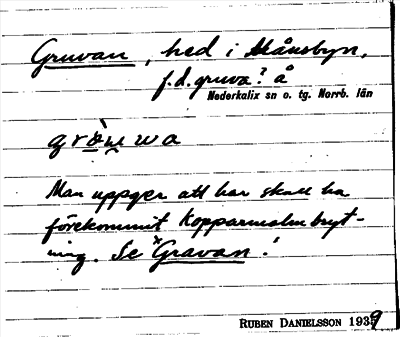 Gruvan, hed i Månsbyn,
f.d. gruva? å
Nederkalix sn o. tg. Norrb. län
grὸu̯wa
Man uppger att har skall ha
förekommit kopparmalmbryt-
ning. Se ˣGravan!
RUBEN DANIELSSON 1939